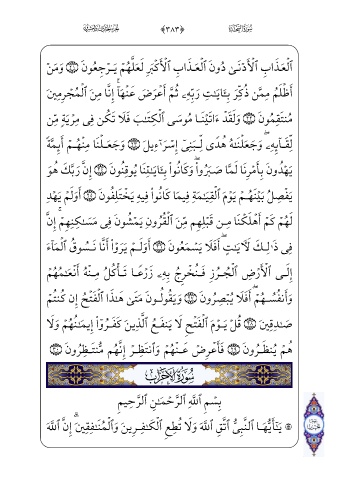 سُورَةُ السَّجۡدَةِ
﴿٣٨٣﴾
ٱلۡعَذَابِ ٱلۡأَدۡنَىٰ دُونَ ٱلۡعَذَابِ ٱلۡأَكۡبَرِ لَعَلَّهُمۡ يَرۡجِعُونَ ۝ وَمَنۡ
أَظۡلَمُ مِمَّن ذُكِّرَ بِـَٔايَٰتِ رَبِّهِۦ ثُمَّ أَعۡرَضَ عَنۡهَآۚ إِنَّا مِنَ ٱلۡمُجۡرِمِينَ
مُنتَقِمُونَ ۝ وَلَقَدۡ ءَاتَيۡنَا مُوسَى ٱلۡكِتَٰبَ فَلَا تَكُن فِي مِرۡيَةٖ مِّن
لِّقَآئِهِۦۖ وَجَعَلۡنَٰهُ هُدٗى لِّبَنِيٓ إِسۡرَٰٓءِيلَ ۝ وَجَعَلۡنَا مِنۡهُمۡ أَئِمَّةٗ
يَهۡدُونَ بِأَمۡرِنَا لَمَّا صَبَرُواْۖ وَكَانُواْ بِـَٔايَٰتِنَا يُوقِنُونَ ۝ إِنَّ رَبَّكَ هُوَ
يَفۡصِلُ بَيۡنَهُمۡ يَوۡمَ ٱلۡقِيَٰمَةِ فِيمَا كَانُواْ فِيهِ يَخۡتَلِفُونَ ۝ أَوَلَمۡ يَهۡدِ
لَهُمۡ كَمۡ أَهۡلَكۡنَا مِن قَبۡلِهِم مِّنَ ٱلۡقُرُونِ يَمۡشُونَ فِي مَسَٰكِنِهِمۡۚ إِنَّ
فِي ذَٰلِكَ لَأٓيَٰتٍۚ أَفَلَا يَسۡمَعُونَ ۝ أَوَلَمۡ يَرَوۡاْ أَنَّا نَسُوقُ ٱلۡمَآءَ
إِلَى ٱلۡأَرۡضِ ٱلۡجُرُزِ فَنُخۡرِجُ بِهِۦ زَرۡعٗا تَأۡكُلُ مِنۡهُ أَنۡعَٰمُهُمۡ
وَأَنفُسُهُمۡۚ أَفَلَا يُبۡصِرُونَ ۝ وَيَقُولُونَ مَتَىٰ هَٰذَا ٱلۡفَتۡحُ إِن كُنتُمۡ
صَٰدِقِينَ ۝ قُلۡ يَوۡمَ ٱلۡفَتۡحِ لَا يَنفَعُ ٱلَّذِينَ كَفَرُوٓاْ إِيمَٰنُهُمۡ وَلَا
هُمۡ يُنظَرُونَ ۝ فَأَعۡرِضۡ عَنۡهُمۡ وَٱنتَظِرۡ إِنَّهُم مُّنتَظِرُونَ ۝
سُورَةُ الأَحۡزَابِ
بِسۡمِ ٱللَّهِ ٱلرَّحۡمَٰنِ ٱلرَّحِيمِ
۞ يَٰٓأَيُّهَا ٱلنَّبِيُّ ٱتَّقِ ٱللَّهَ وَلَا تُطِعِ ٱلۡكَٰفِرِينَ وَٱلۡمُنَٰفِقِينَۚ إِنَّ ٱللَّهَ